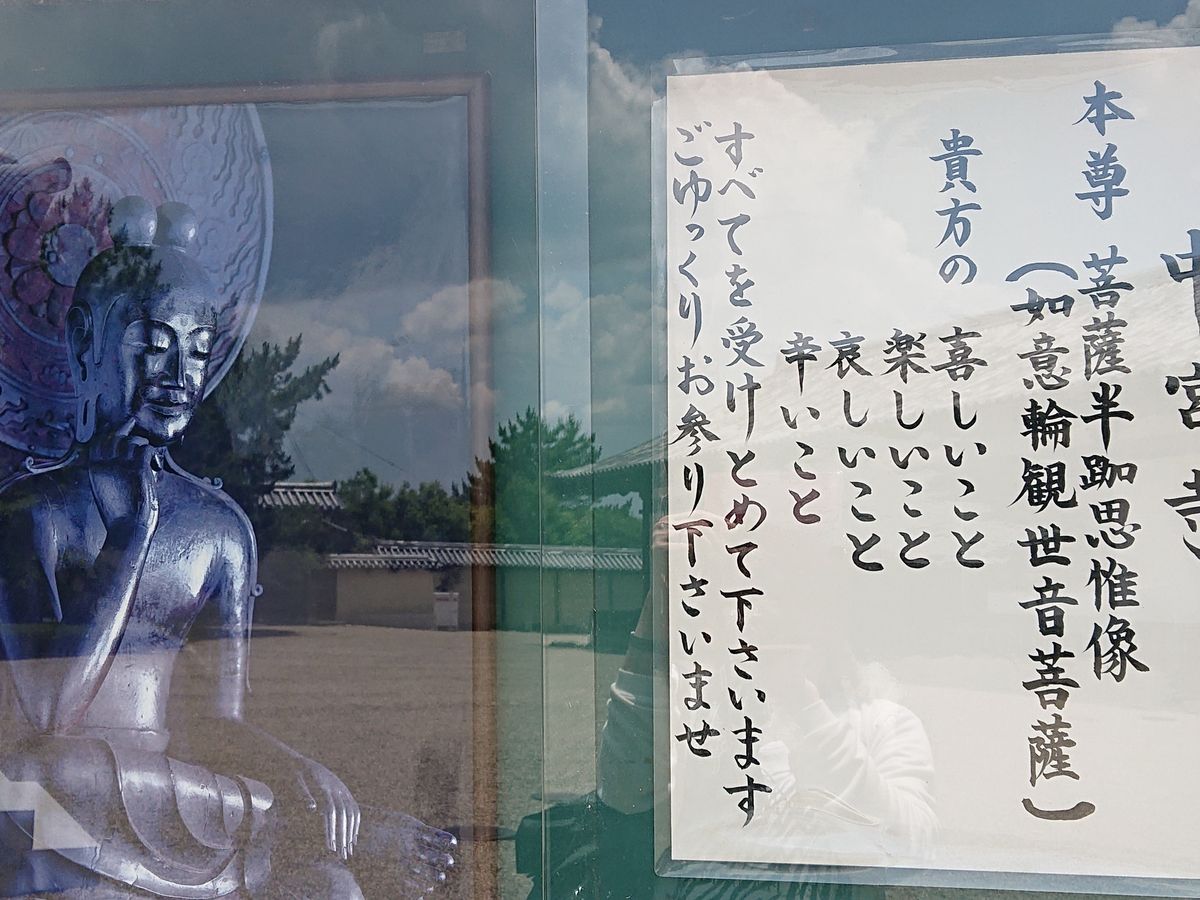 中宮寺
本尊 菩薩半跏思惟像
(如意輪観世音菩薩)
貴方の 喜しいこと
楽しいこと
哀しいこと
辛いこと
すべてを受けとめて下さいます
ごゆっくりお参り下さいませ